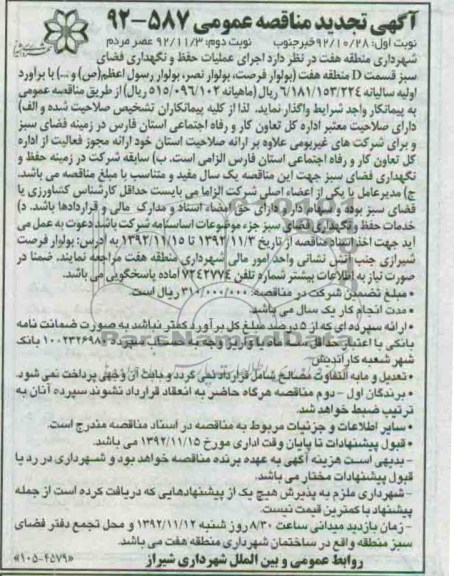 آگهی تجدید مناقصه عمومی ۵۸۷-۹۲
نوبت اول: ۹۲/۱۰/۲۸ خبرجنوب نوبت دوم: ۹۲/۱۱/۳ عصر مردم
شهرداری منطقه هفت در نظر دارد اجرای عملیات حفظ و نگهداری فضای
سبز قسمت D منطقه هفت (بولوار فرصت، بولوار نصر، بولوار رسول اعظم(ص) و ...) با برآورد
اولیه سالیانه ۶/۱۸۱/۱۵۳/۲۲۴ ریال (ماهیانه ۵۱۵/۰۹۶/۱۰۲ ریال) از طریق مناقصه عمومی
به پیمانکار واجد شرایط واگذار نماید. لذا از کلیه پیمانکاران تشخیص صلاحیت شده و الف)
دارای صلاحیت معتبر اداره کل تعاون کار و رفاه اجتماعی استان فارس در زمینه فضای سبز
و برای شرکت های غیربومی علاوه بر ارائه صلاحیت استان خود ارائه مجوز فعالیت از اداره
کل تعاون کار و رفاه اجتماعی استان فارس الزامی است. ب) سابقه شرکت در زمینه حفظ و
نگهداری فضای سبز جهت این مناقصه یک سال مفید و متناسب با مبلغ مناقصه می باشد.
ج) مدیرعامل یا یکی از اعضاء اصلی شرکت الزاما می بایست حداقل کارشناس کشاورزی یا
فضای سبز بوده و سهام دار و دارای حق امضاء اسناد و مدارک مالی و قراردادها باشد. د)
خدمات حفظ و نگهداری فضای سبز جزء موضوعات اساسنامه شرکت باشد دعوت به عمل می
آید جهت اخذ اسناد مناقصه از تاریخ ۱۳۹۲/۱۱/۳ تا ۱۳۹۲/۱۱/۱۵ به آدرس: بولوار فرصت
شیرازی جنب آتش نشانی واحد امور مالی شهرداری منطقه هفت مراجعه نمایند. ضمنا در
صورت نیاز به اطلاعات بیشتر شماره تلفن ۷۲۴۲۷۷۴ آماده پاسخگویی می باشد.
• مبلغ تضمین شرکت در مناقصه: ۳۱۰/۰۰۰/۰۰۰ ریال است.
• مدت انجام کار یک سال می باشد.
• ارائه سپرده ای که از ۵ درصد مبلغ کل برآورد کمتر نباشد به صورت ضمانت نامه
بانکی با اعتبار حداقل سه ماهه یا واریز وجه به حساب سپرده بانک
شهر شعبه کاراندیش
• تعدیل و مابه التفاوت مصالح شامل قرارداد نمی گردد و بابت آن وجهی پرداخت نمی شود.
• برندگان اول - دوم مناقصه هرگاه حاضر به انعقاد قرارداد نشوند سپرده آنان به
ترتیب ضبط خواهد شد.
• سایر اطلاعات و جزئیات مربوط به مناقصه در اسناد مناقصه مندرج است.
• قبول پیشنهادات تا پایان وقت اداری مورخ ۱۳۹۲/۱۱/۱۵ می باشد.
- بدیهی است هزینه آگهی به عهده برنده مناقصه خواهد بود و شهرداری در رد یا
قبول پیشنهادات مختار می باشد.
- شهرداری ملزم به پذیرش هیچ یک از پیشنهادهایی که دریافت کرده است از جمله
پیشنهاد با کمترین قیمت نیست.
- زمان بازدید میدانی ساعت ۸/۳۰ روز شنبه ۱۳۹۲/۱۱/۱۲ و محل تجمع دفتر فضای
سبز منطقه واقع در ساختمان شهرداری منطقه هفت می باشد.
روابط عمومی و بین الملل شهرداری شیراز «۱۰۵-۴۵۷۹»